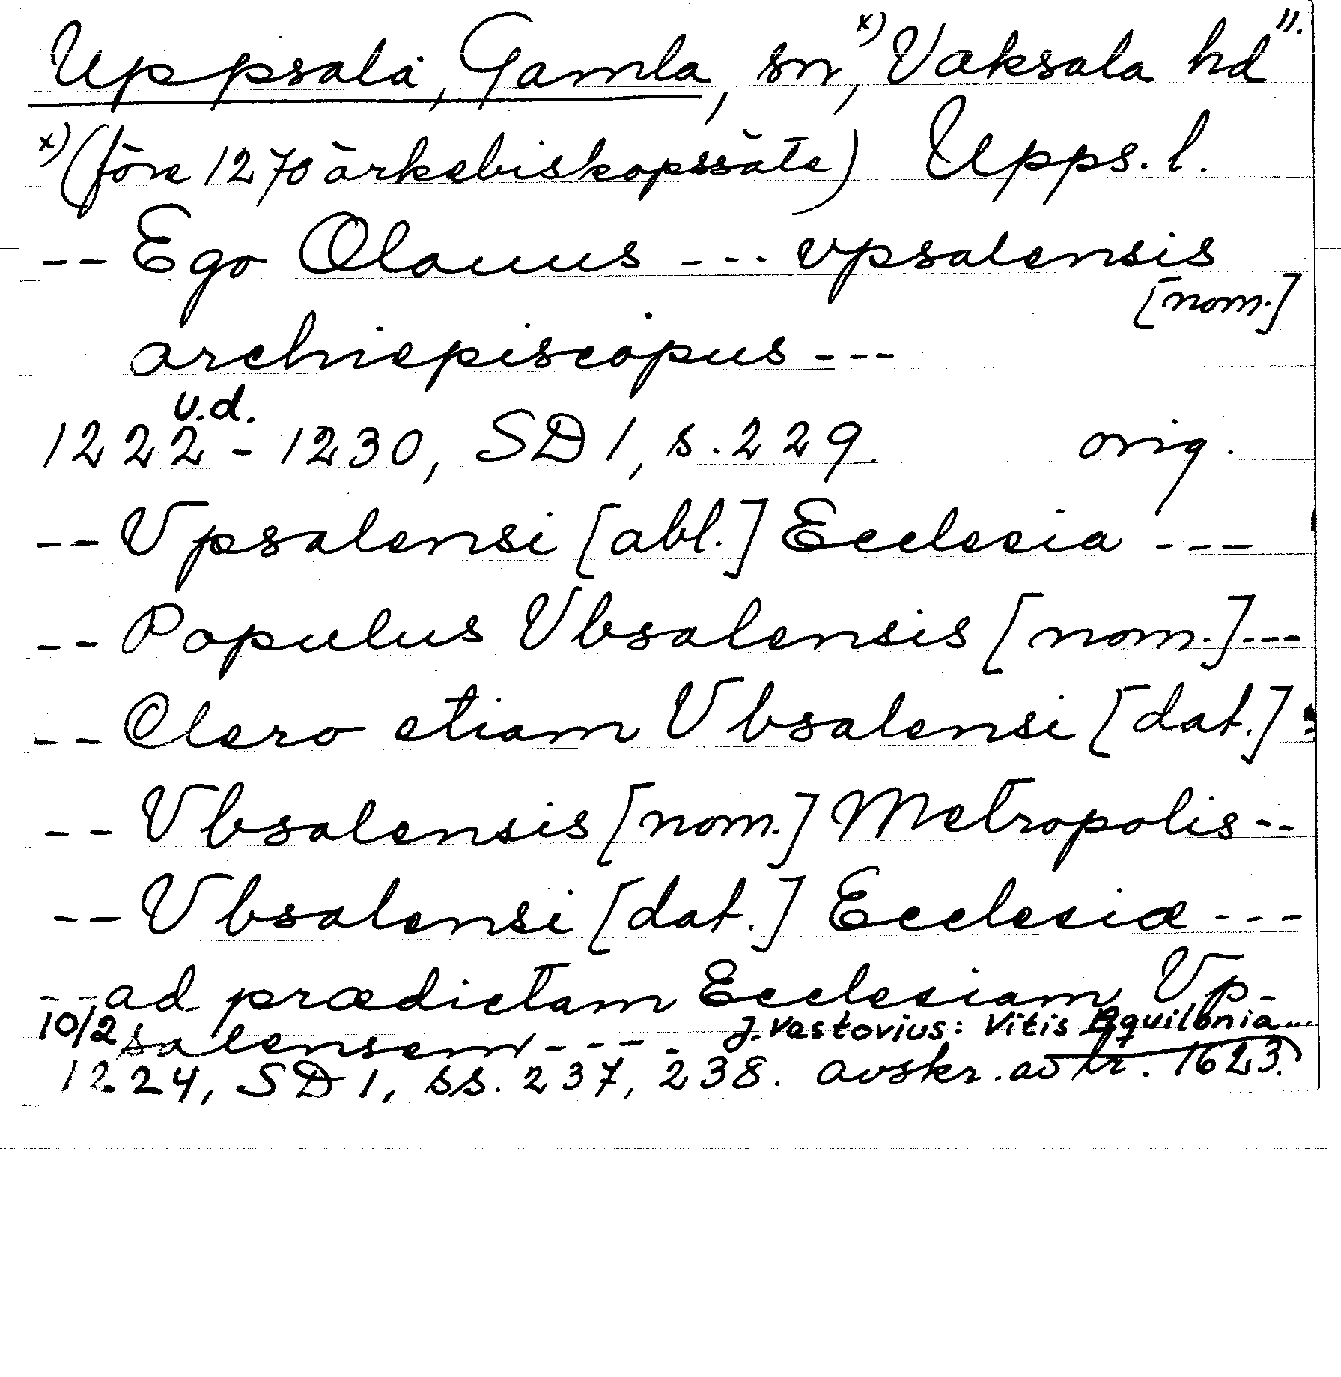 Uppsala, Gamla, sn, x) Vaksala hd 11.
x) (före 1270 ärkebiskopssäte) Upps. l.
-- Ego Olauus --- vpsalensis
[nom.]
archiepiscopus ---
u.d.
1222 - 1230, SD 1, s. 229 orig.
-- Vpsalensi [abl.] Ecclesia ---
-- Populus Vbsalensis [nom.] ---
-- Clero etiam Vbsalensi [dat.]
-- Vbsalensis [nom.] Metropolis --
-- Vbsalensi [dat.] Ecclesiæ ---
-- ad prædictam Ecclesiam Vp-
salensem ---- J. Vastovius: Vitis Aquilonia...
10/2
1224, SD 1, ss. 237, 238. avskr. av tr. 1623.